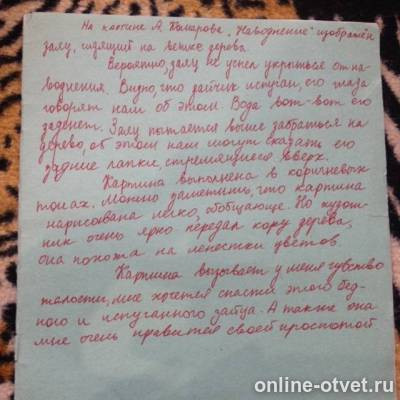 На картине А. Комарова "Наводнение" изображён
заяц, сидящий на ветке дерева.
Вероятно, заяц не успел укрыться от на-
воднения. Видно, что зайчик испуган, его глаза
говорят нам об этом Вода вот-вот его
заденет. Заяц пытается выше забраться на
дерево, об этом нам могут сказать его
задние лапки, стремящиеся вверх.
Картина выполнена в коричневых
тонах. Можно заметить, что картина
нарисована легко, обобщающе. Но худож-
ник очень ярко передал кору дерева,
она похожа на лепестки цветов.
Картина вызывает у меня чувство
жалости, мне хочется спасти этого бед-
ного и испуганного зайца. А также она
мне очень нравится своей простотой
online-otvet.ru